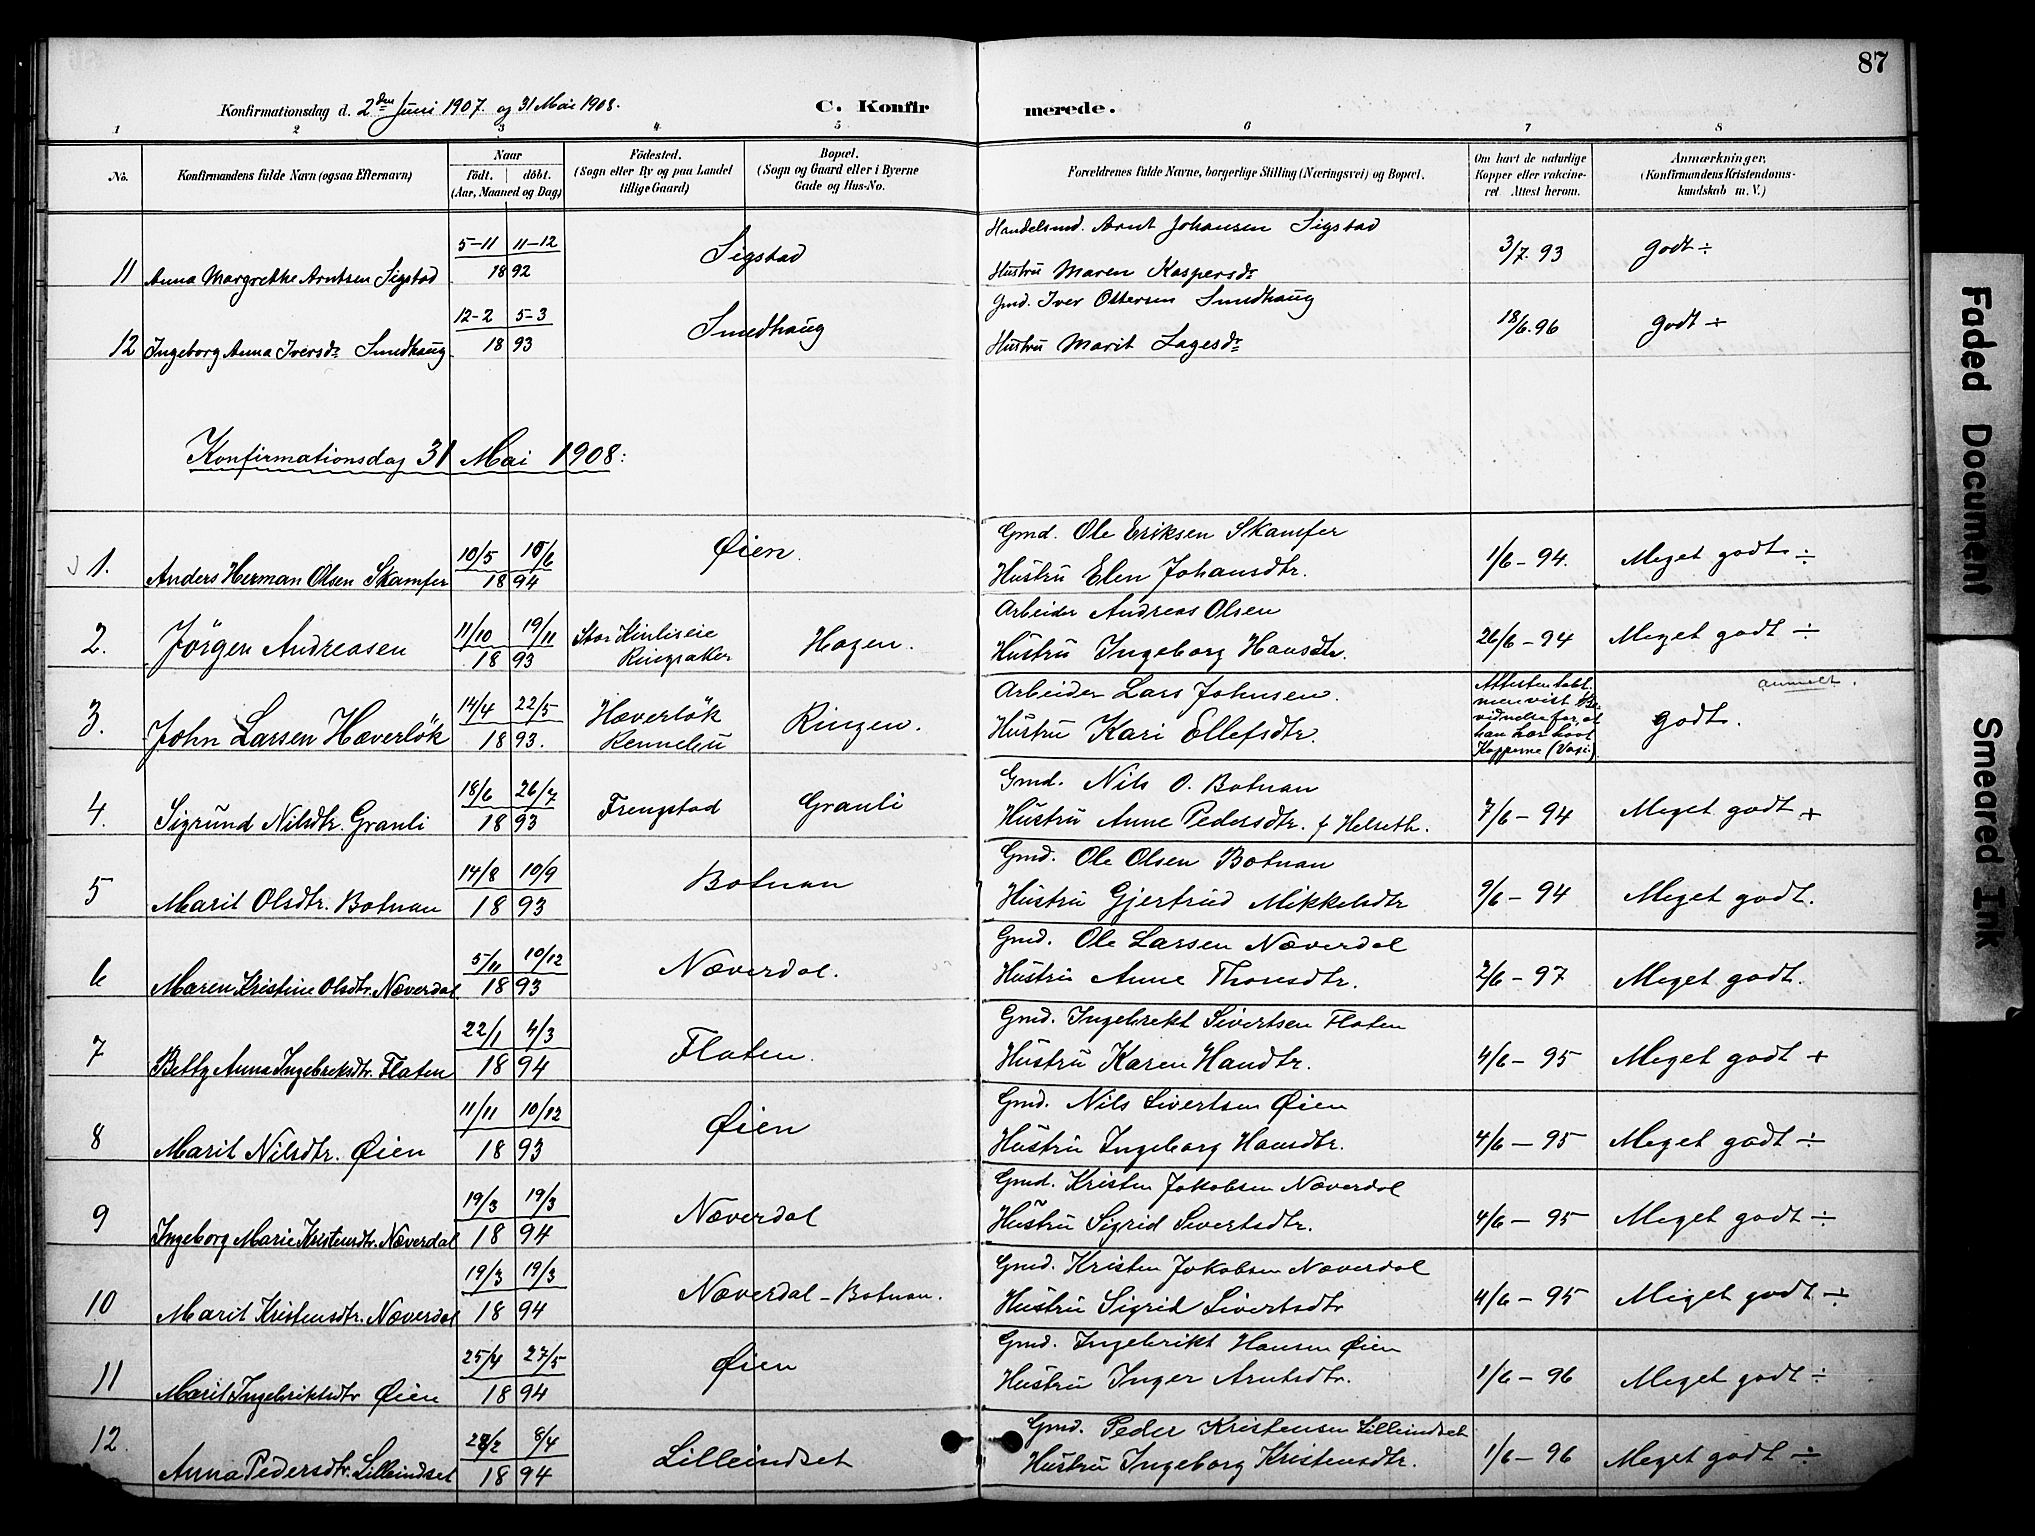 87
Konfirmationsdag d. 2den Juni 1907. og 31 Mai 1908.
C. Konfirmerede.
1 2 3 4 5 6 7 8
No.
Konfirmandens fulde Navn (ogsaa Efternavn)
Naar
født. døbt.
(Aar, Maaned og Dag)
Födested.
(Sogn eller By og paa Landet
tillige Gaard)
Bopæl.
(Sogn og Gaard eller i Byerne
Gade og Hus-No.
Forældrenes fulde Navne, borgerlige Stilling (Næringsvei) og Bopæl.
Om havt de naturlige
Kopper eller vakcine-
ret Attest herom.
Anmærkninger,
(Konfirmandens Kristendoms-
kundskab m. V.)
11 Anna Margrethe Arntsen Sigstad
5-11 11-12
18 92
Sigstad
Handelsmd. Arnt Johansen Sigstad
Hustru Maren Kaspersdr
3/7. 93
Godt ÷
12 Ingeborg Anna Iversdr Smedhaug
12-2 5-3
18 93
Smedhaug
Gmd. Iver Ottersen Smedhaug
Hustru Marit Lagesdr
18/6. 96
Godt ÷
Konfirmationsdag 31 Mai 1908:
1. Anders Herman Olsen Skamfer
10/5 10/6
18 94
Øien.
Gmd. Ole Eriksen Skamfer
Hustru Elen Johansdtr.
1/6 - 94.
Meget godt ÷
2. Jørgen Andreasen
11/10 19/11
18 93
Ringsaker
Hagen.
Arbeider Andreas Olsen
Hustru Ingeborg Hansdtr.
26/6 - 94
Meget godt ÷
3. John Larsen Hæverløk
14/4 22/5
18 93.
Hæverløk
Rennebu
Ringen.
Arbeider Lars Johnsen.
Hustru Kari Ellefsdtr.
Attesten tabt
men vist
vidnelse for, at
han har havt
Kopperne (Vaxi.)
anmelt.
Godt.
4. Sigrund Nilsdtr. Granli
18/6 26/7
18 93
Frengstad
Granli
Gmd. Nils O. Botnan
Hustru Anne Pedersdtr. f Helseth.
7/6 - 94
Meget godt +
5 Marit Olsdtr. Botnan
14/8 10/9
18 93
Botnan
Gmd. Ole Olsen Botnan
Hustru Gjertrud Mikkelsdtr
9/6 - 94
Meget godt.
6 Maren Kristine Olsdtr. Næverdal
5/11 10/12
18 93
Næverdal.
Gmd. Ole Larsen Næverdal
Hustru Anne Thoresdtr.
2/6 - 97
Meget godt.
7 Betty Anna Ingebrektsdtr. Flaten
22/1 4/3
18 94
Flaten.
Gmd. Ingebrekt Sivertsen Flaten
Hustru Karen Handtr.
4/6 - 95
Meget godt +
8 Marit Nilsdtr. Øien
11/11 10/12
18 93
Øien
Gmd. Nils Sivertsen Øien
Hustru Ingeborg Hansdtr.
4/6 - 95
Meget godt ÷
9 Ingeborg Marie Kristensdtr. Næverdal
19/3 19/3
18 94
Næverdal
Gmd. Kristen Jakobsen Næverdal
Hustru Sigrid Sivertsdtr.
4/6 - 95
Meget godt ÷
10 Marit Kristensdtr. Næverdal
19/3 19/3
18 94
Næverdal - Botnan.
Gmd. Kristen Jakobsen Næverdal
Hustru Sigrid Sivertsdtr
4/6 - 95
Meget godt ÷
11 Marit Ingebriktsdtr Øien
25/4 27/5
18 94
Øien
Gmd. Ingebrikt Hansen Øien
Hustru Inger Arntsdtr.
1/6 - 96
Meget godt ÷
12. Anna Pedersdtr. Lilleindset
8/4
18 94
Lilleindset
Gmd. Peder Kristensen Lilleindset
Hustru Ingeborg Kristensdtr.
1/6 - 96
Meget godt ÷
Faded Document
Smeared Ink